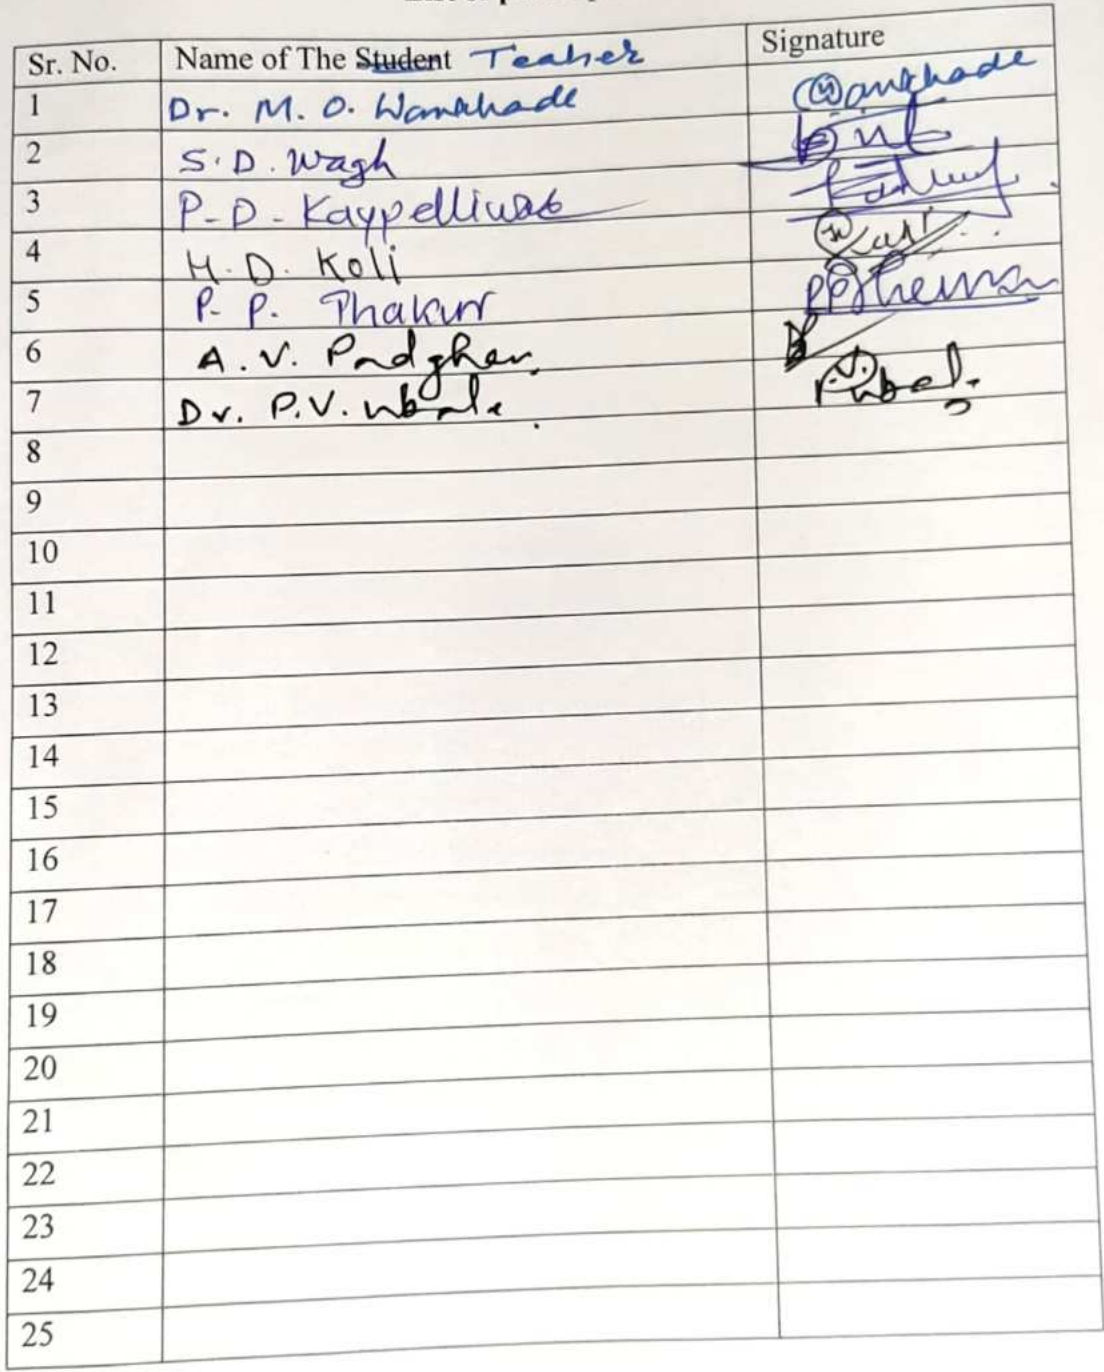 Sr. No. Name of The Student Teaher Signature
1 Dr. M. O. Wankhade Wankhade
2 S. D. Wagh
3 P. D. Kaypelliwar
4 H. D. Koli
5 P. P. Thakur
6 A. V. Padghan
7 Dr. P. V. Ubale
8
9
10
11
12
13
14
15
16
17
18
19
20
21
22
23
24
25